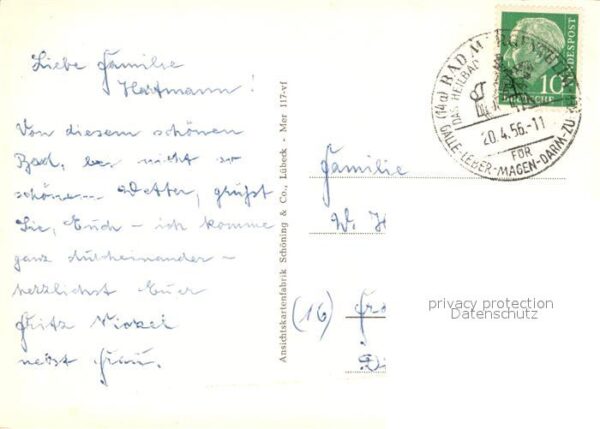 Liebe Familie
Hartmann!
Von diesem schönen
Bad, bei nicht so
schönem Wetter, grüßt
Sie, Euch - ich komme
ganz durcheinander -
herzlichst Euer
Fritz
nebst Frau.
Ansichtskartenfabrik Schöning & Co., Lübeck - Mer 117-vf
(14a) BAD MERGENTHEIM
DAS HEILBAD
20.4.56-11
FÜR
GALLE-LEBER-MAGEN-DARM-ZU
10
DEUTSCHE BUNDESPOST
Familie
W. H
(16)
privacy protection
Datenschutz